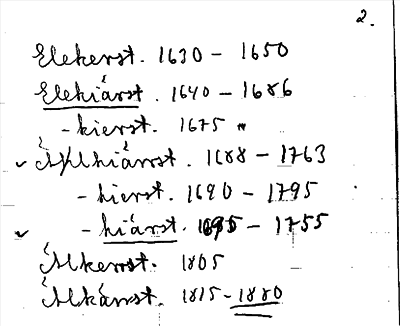 2.
Elekerst. 1630 – 1650
Elekiärst. 1640 – 1686
– kierst. 1675
1688 – 1763
– kierst. 1690 – 1795
– kiärst. 1695 – 1755
Älkerrst. 1805
Älkärrst. 1815 – 1880